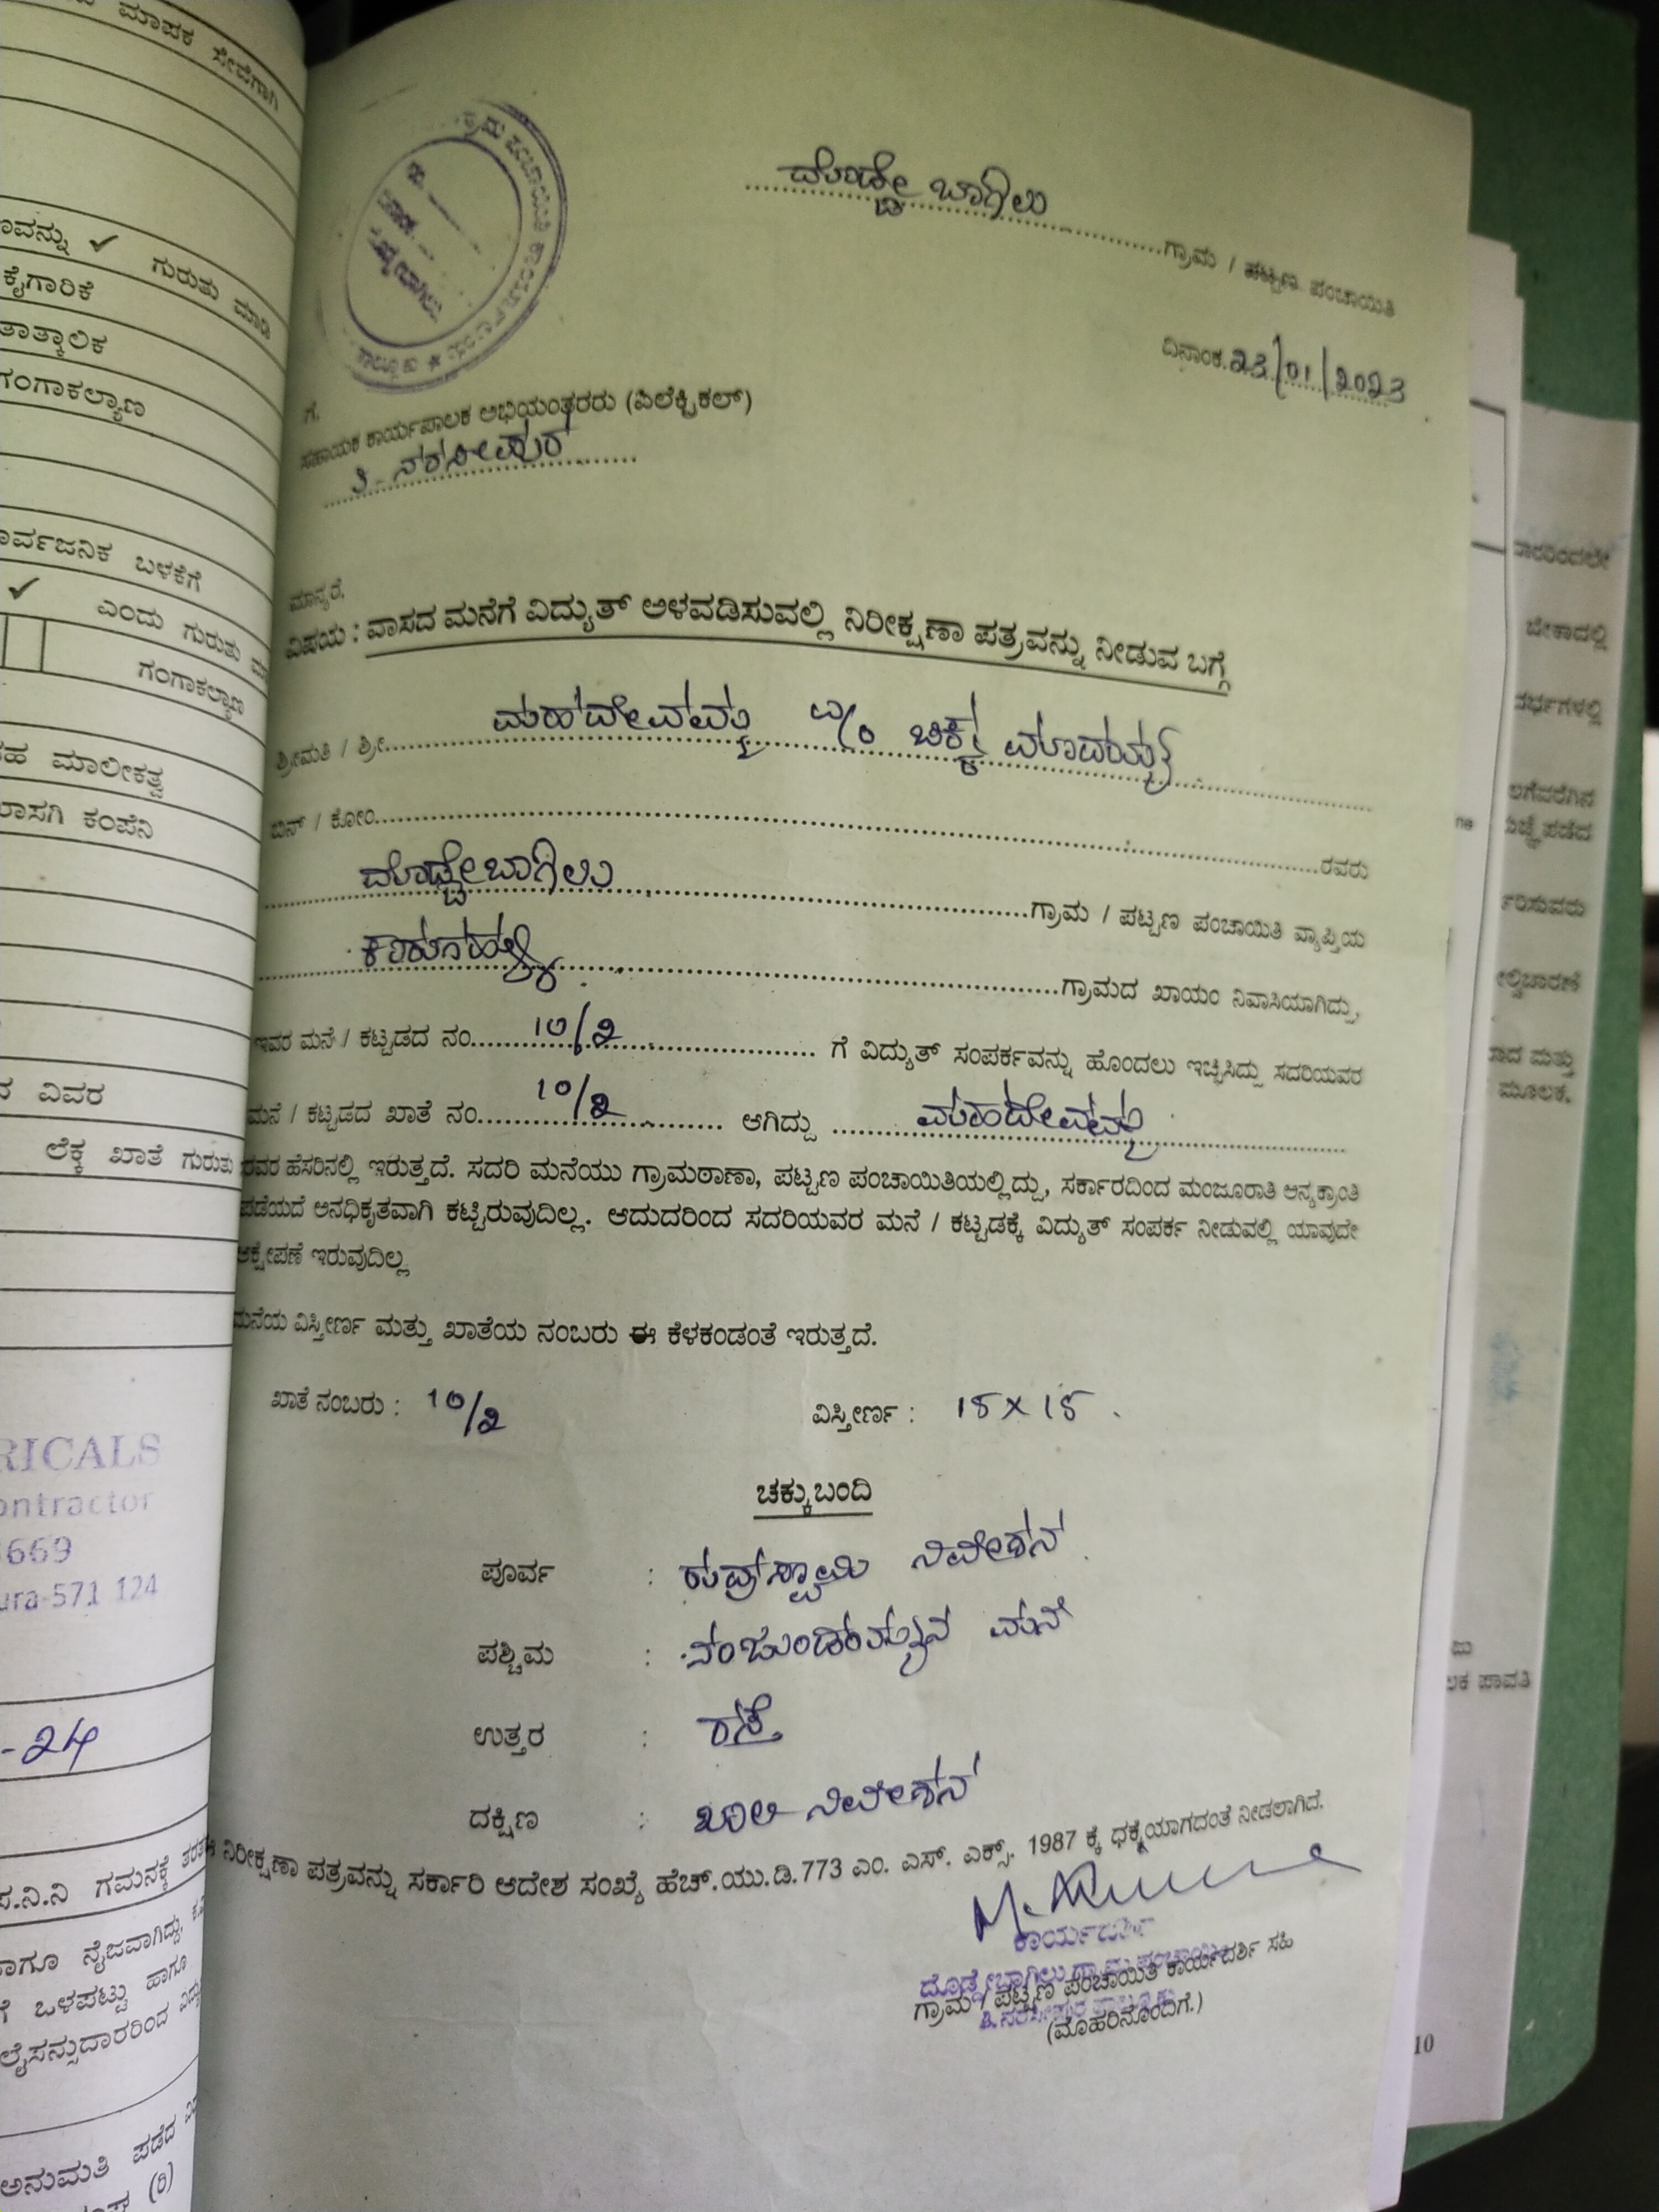 ದೊಡ್ಡೇ ಬಾಗಿಲು
ಗ್ರಾಮ / ಪಟ್ಟಣ ಪಂಚಾಯಿತಿ
ದಿನಾಂಕ. 23/01/2023
ಗೆ,
ಸಹಾಯಕ ಕಾರ್ಯಪಾಲಕ ಅಭಿಯಂತರರು (ಎಲೆಕ್ಟ್ರಿಕಲ್)
ತಿ. ನರಸೀಪುರ
ಮಾನ್ಯರೆ,
ವಿಷಯ : ವಾಸದ ಮನೆಗೆ ವಿದ್ಯುತ್ ಅಳವಡಿಸುವಲ್ಲಿ ನಿರೀಕ್ಷಣಾ ಪತ್ರವನ್ನು ನೀಡುವ ಬಗ್ಗೆ
ಶ್ರೀಮತಿ / ಶ್ರೀ ಮಹದೇವಮ್ಮ W/o ಚಿಕ್ಕ ಮಾದಯ್ಯ
ಬಿನ್ / ಕೋಂ ರವರು
ದೊಡ್ಡೇಬಾಗಿಲು ಗ್ರಾಮ / ಪಟ್ಟಣ ಪಂಚಾಯಿತಿ ವ್ಯಾಪ್ತಿಯ
ಗ್ರಾಮದ ಖಾಯಂ ನಿವಾಸಿಯಾಗಿದ್ದು,
ಇವರ ಮನೆ / ಕಟ್ಟಡದ ನಂ 10/2 ಗೆ ವಿದ್ಯುತ್ ಸಂಪರ್ಕವನ್ನು ಹೊಂದಲು ಇಚ್ಛಿಸಿದ್ದು ಸದರಿಯವರ
ಮನೆ / ಕಟ್ಟಡದ ಖಾತೆ ನಂ 10/2 ಆಗಿದ್ದು ಮಹದೇವಮ್ಮ
ರವರ ಹೆಸರಿನಲ್ಲಿ ಇರುತ್ತದೆ. ಸದರಿ ಮನೆಯು ಗ್ರಾಮಠಾಣಾ, ಪಟ್ಟಣ ಪಂಚಾಯಿತಿಯಲ್ಲಿದ್ದು, ಸರ್ಕಾರದಿಂದ ಮಂಜೂರಾತಿ ಅನ್ಯಕ್ರಾಂತಿ
ಪಡೆಯದೆ ಅನಧಿಕೃತವಾಗಿ ಕಟ್ಟಿರುವುದಿಲ್ಲ. ಆದುದರಿಂದ ಸದರಿಯವರ ಮನೆ / ಕಟ್ಟಡಕ್ಕೆ ವಿದ್ಯುತ್ ಸಂಪರ್ಕ ನೀಡುವಲ್ಲಿ ಯಾವುದೇ
ಆಕ್ಷೇಪಣೆ ಇರುವುದಿಲ್ಲ
ಮನೆಯ ವಿಸ್ತೀರ್ಣ ಮತ್ತು ಖಾತೆಯ ನಂಬರು ಈ ಕೆಳಕಂಡಂತೆ ಇರುತ್ತದೆ.
ಖಾತೆ ನಂಬರು : 10/2 ವಿಸ್ತೀರ್ಣ : 15 x 15 .
ಚಕ್ಕುಬಂದಿ
ಪೂರ್ವ : ನಿವೇಶನ
ಪಶ್ಚಿಮ : ಮನೆ
ಉತ್ತರ : ರಸ್ತೆ
ದಕ್ಷಿಣ : ಖಾಲಿ ನಿವೇಶನ
ಈ ನಿರೀಕ್ಷಣಾ ಪತ್ರವನ್ನು ಸರ್ಕಾರಿ ಆದೇಶ ಸಂಖ್ಯೆ ಹೆಚ್.ಯು.ಡಿ.773 ಎಂ. ಎಸ್. ಎಕ್ಸ್. 1987 ಕ್ಕೆ ಧಕ್ಕೆಯಾಗದಂತೆ ನೀಡಲಾಗಿದೆ.
ಕಾರ್ಯದರ್ಶಿ
ದೊಡ್ಡೇಬಾಗಿಲು ಗ್ರಾಮ ಪಂಚಾಯಿತಿ
ಗ್ರಾಮ / ಪಟ್ಟಣ ಪಂಚಾಯಿತಿ ಕಾರ್ಯದರ್ಶಿ ಸಹಿ
(ಮೊಹರಿನೊಂದಿಗೆ.)
ಮಾಪಕ ಸೇವೆಗಾಗಿ
ಗುರುತು ಮಾಡಿ
ಕೈಗಾರಿಕೆ
ತಾತ್ಕಾಲಿಕ
ಗಂಗಾಕಲ್ಯಾಣ
ಸಾರ್ವಜನಿಕ ಬಳಕೆಗೆ
ಎಂದು ಗುರುತು
ಗಂಗಾಕಲ್ಯಾಣ
ಸಹ ಮಾಲೀಕತ್ವ
ಖಾಸಗಿ ಕಂಪೆನಿ
ವಿವರ
ಲೆಕ್ಕ ಖಾತೆ ಗುರುತು
RICALS
ontractor
669
ura-571 124
-24
ಗಮನಕ್ಕೆ
ಹಾಗೂ ನೈಜವಾಗಿದ್ದು,
ಒಳಪಟ್ಟು ಹಾಗೂ
ಲೈಸನ್ಸುದಾರರಿಂದ
ಅನುಮತಿ ಪಡೆದ
10